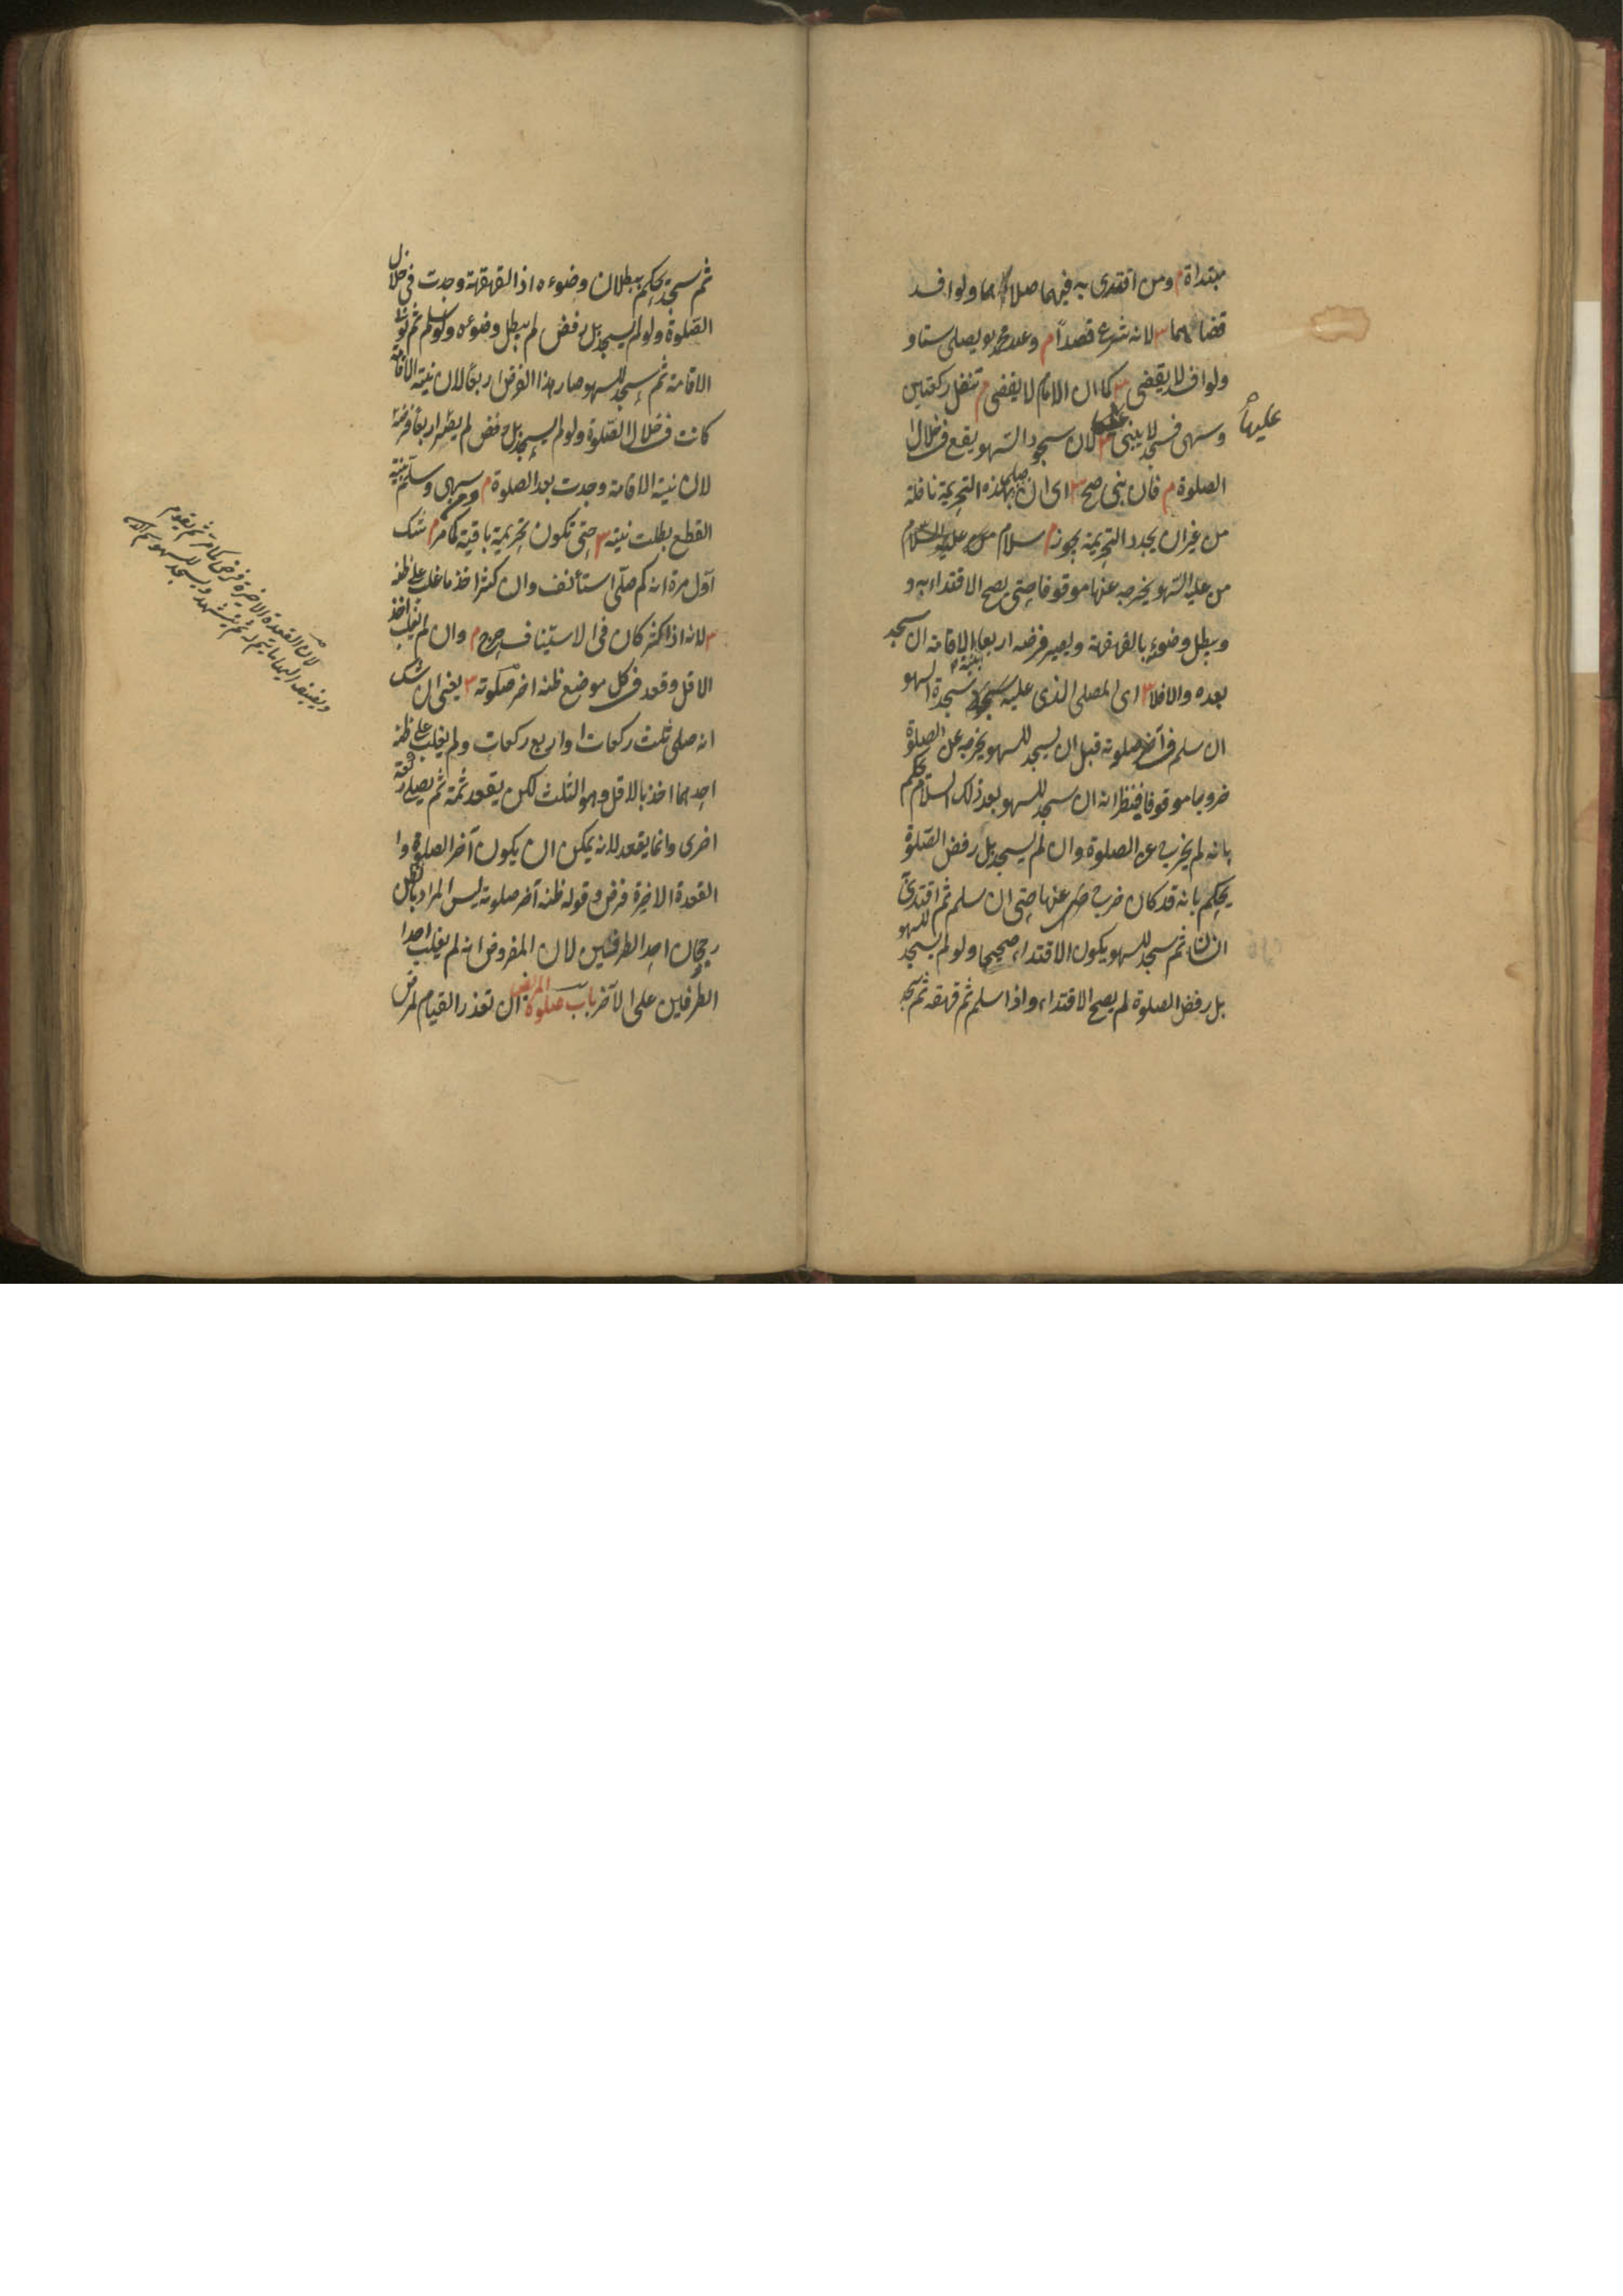 مبتداة م ومن اقتدى به فيهما صلاهما ولو افسد
قضاهما س لانه شرع قصداً م وعند محمد يصلى ستا و
ولو افسد لا يقضى س كما ان الامام لا يقضى م تنفل ركعتين
وسهى فسجد لا يبنى س لان سجود السهو يقع فى خلال
عليها
الصلوة م فان بنى صح س اى ان صلى بهذه التحريمة نافلة
من غير ان يجدد التحريمة يجوز م سلام
من عليه السهو يخرجه عنها موقوفا حتى يصح الاقتداء به و
ويبطل وضوءه بالقهقهة ويصير فرضه اربعا بنية الاقامة ان سجد
بعده والا فلا س اى المصلى الذى عليه سجدة السهو
ان سلم فى آخر صلوته قبل ان يسجد للسهو يخرجه عن الصلوة
خروجا موقوفا فينظر انه ان سجد للسهو بعد ذلك السلام يحكم
بانه لم يخرج عن الصلوة وان لم يسجد بل رفض الصلوة
يحكم بانه قد كان خرج عنها حتى ان سلم ثم اقتدى
انسان ثم سجد للسهو يكون الاقتداء صحيحا ولو لم يسجد للسهو
بل رفض الصلوة لم يصح الاقتداء واذا سلم ثم قهقه ثم سجد
ثم سجد يحكم ببطلان وضوءه اذ القهقهة وجدت فى خلال
الصلوة ولو لم يسجد بل رفض لم يبطل وضوءه ولو سلم ثم نوى
الاقامة ثم سجد للسهو صار هذا الفرض اربعًا لان نية الاقامة
كانت فى خلال الصلوة ولو لم يسجد بل رفض لم يصر اربعا فرضه
لان نية الاقامة وجدت بعد الصلوة م ومن سهى وسلم بنية
القطع بطلت نيته س حتى تكون تحريمية باقية كما مر م شك
اول مرة انه كم صلى استأنف وان كثر اخذ ما غلب على ظنه
س لانه اذا كثر كان فى الاستيناف حرج م وان لم يغلب اخذ
الاقل وقعد فى كل موضع ظنه اخر صلوته س يعنى ان شك
انه صلى ثلث ركعات او اربع ركعات ولم يغلب على ظنه
احدهما اخذ بالاقل وهو الثلث لكن يقعد ثمة ثم يصلى ركعة
اخرى وانما يقعد لانه يمكن ان يكون آخر الصلوة وا
القعدة الاخيرة فرض وقوله ظنه آخر صلوته ليس المراد بالظن
رجحان احد الطرفين لان المفروض انه لم يغلب احدا
الطرفين على الآخر باب صلوة المريض ان تعذر القيام لمرض
لان القعدة الاخيرة فرض كما مر ثم تقوم
ويضيف اليها ما يتم ثم يتشهد ويسجد للسهو